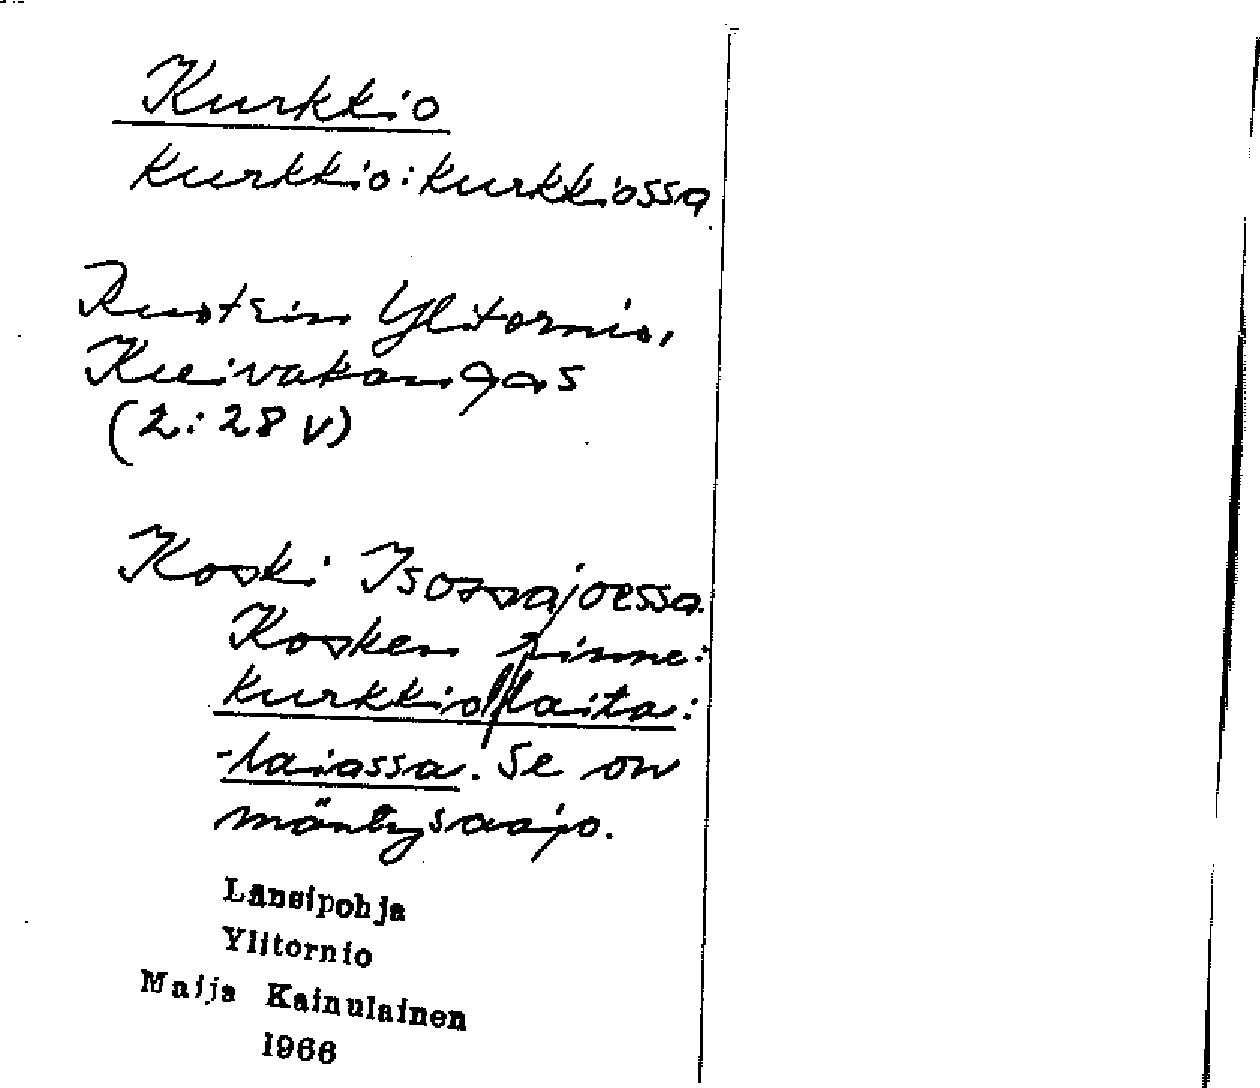 Kurkkio
kurkkio: kurkkiossa
Ruotsin Ylitornio,
Kuivakangas
(2: 28 v)
Koski Isossajoessa.
Kosken rinne:
kurkkio//laita:
-laiassa. Se on
mäntysaajo.
Länsipohja
Ylitornio
Maija Kainulainen
1966